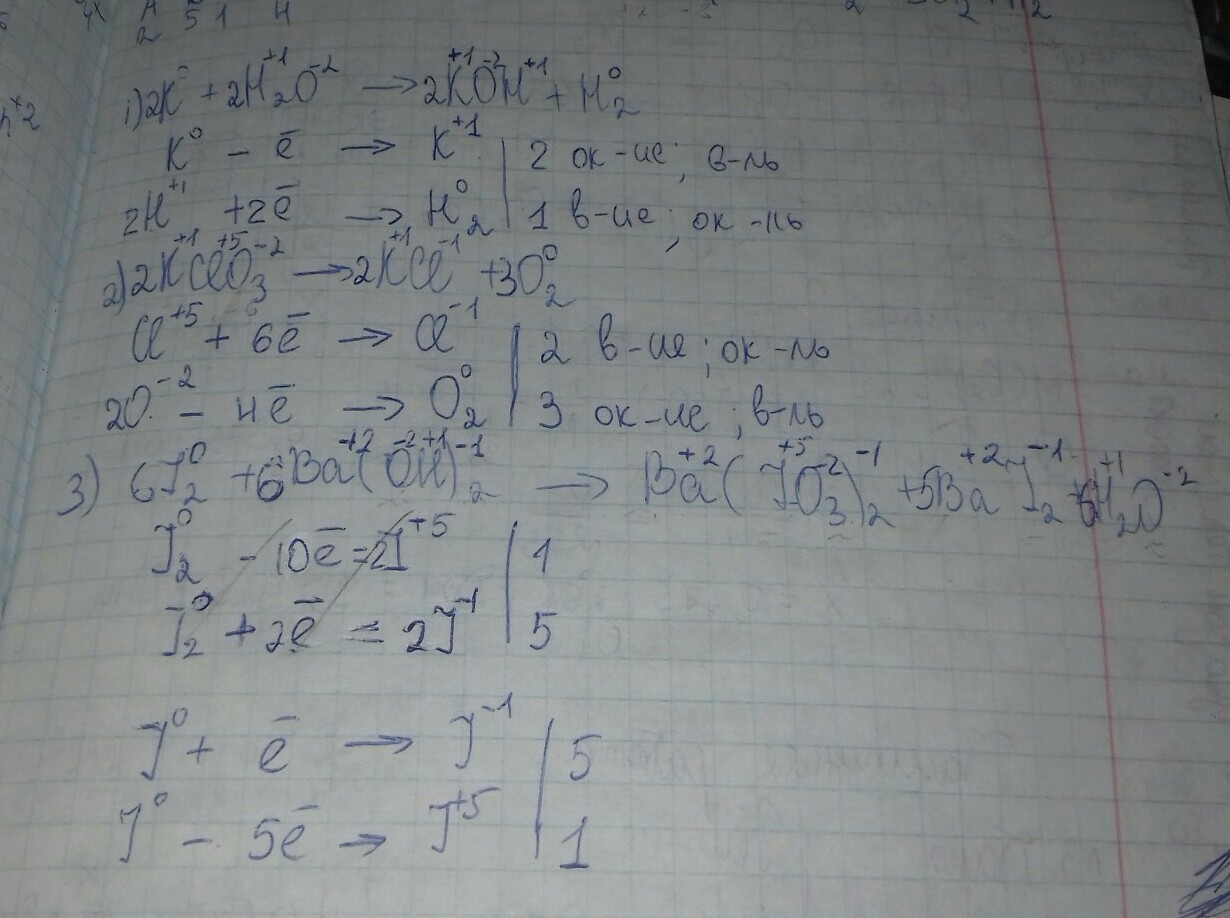 1) 2K⁰ + 2H₂⁺¹O⁻² → 2K⁺¹O⁻²H⁺¹ + H₂⁰
K⁰ - ē → K⁺¹ | 2 ок-ие; в-ль
2H⁺¹ + 2ē → H₂⁰ | 1 в-ие; ок-ль
2) 2K⁺¹Cl⁺⁵O₃⁻² → 2K⁺¹Cl⁻¹ + 3O₂⁰
Cl⁺⁵ + 6ē → Cl⁻¹ | 2 в-ие; ок-ль
2O⁻² - 4ē → O₂⁰ | 3 ок-ие; в-ль
3) 6J₂⁰ + 6Ba⁺²(O⁻²H⁺¹)₂⁻¹ → Ba⁺²(J⁺⁵O₃⁻²)₂⁻¹ + 5Ba⁺²J₂⁻¹ + 6H₂⁺¹O⁻²
J₂⁰ - 10ē = 2J⁺⁵ | 1
J₂⁰ + 2ē = 2J⁻¹ | 5
J⁰ + ē → J⁻¹ | 5
J⁰ - 5ē → J⁺⁵ | 1